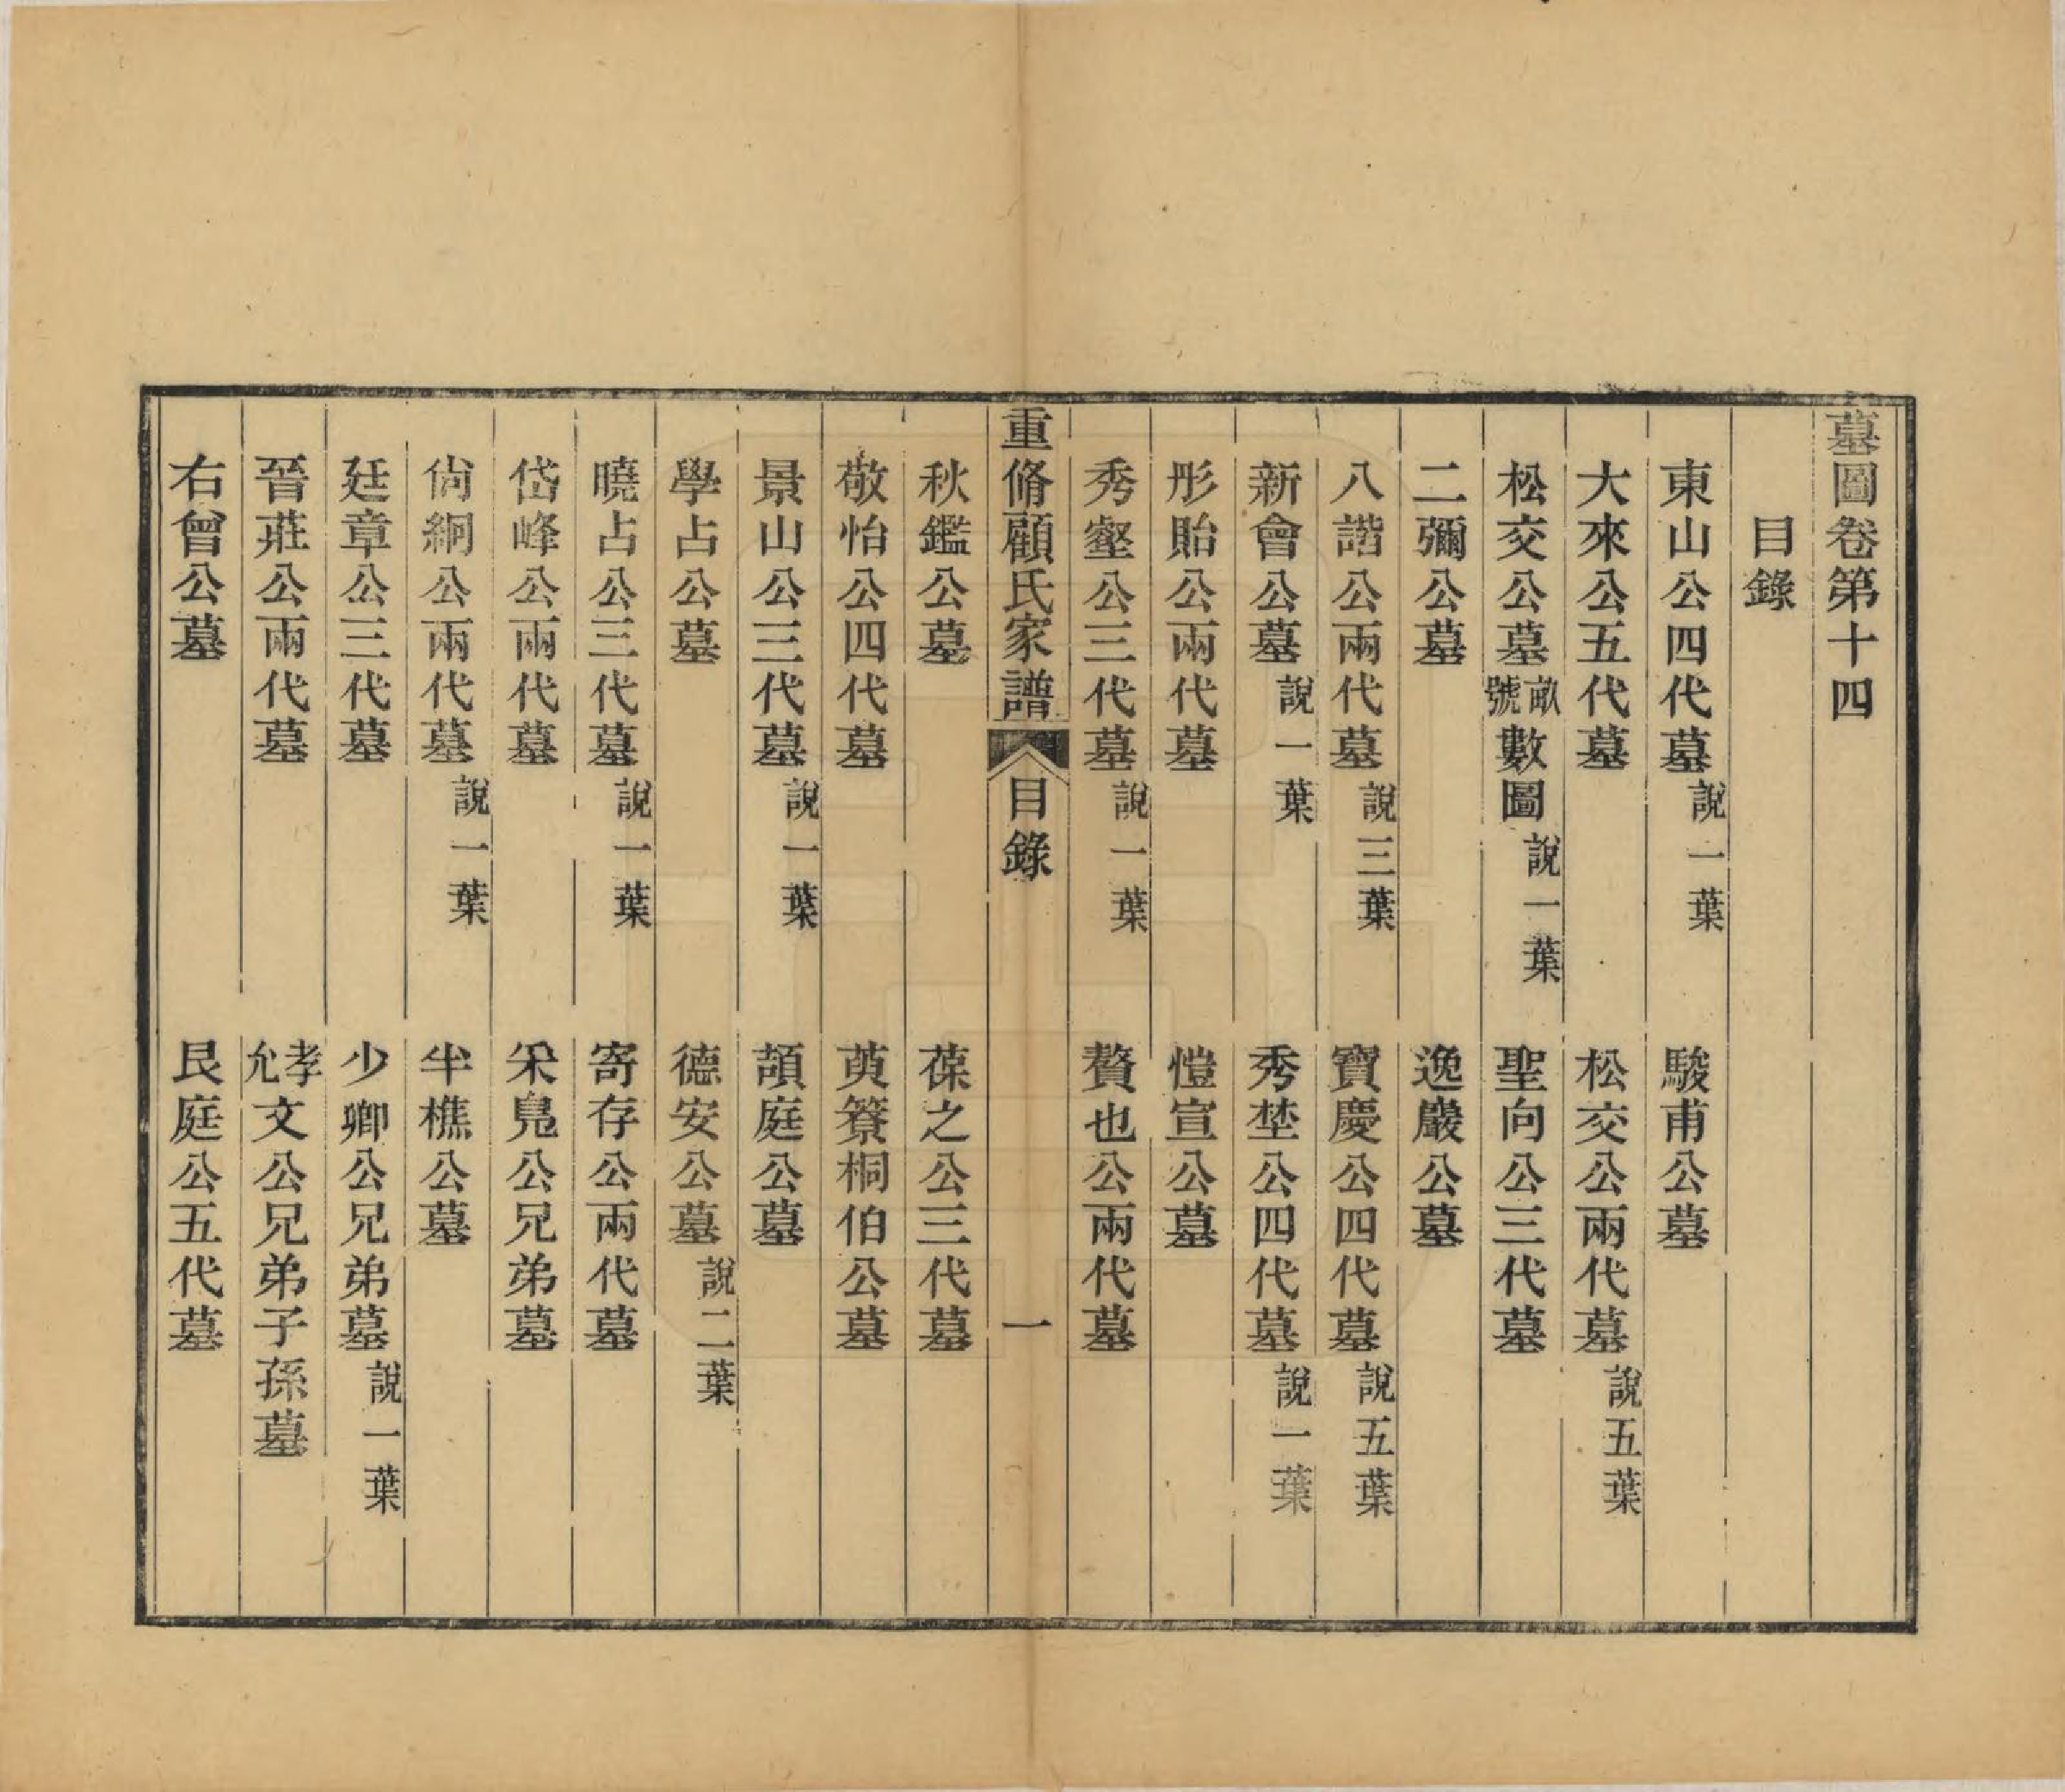 墓圖卷第十四
目錄
東山公四代墓說一葉 駿甫公墓
大來公五代墓 松交公兩代墓說五葉
松交公墓畝號數圖說一葉 聖向公三代墓
二彌公墓 逸巖公墓
八諧公兩代墓說三葉 寶慶公四代墓說五葉
新會公墓說一葉 秀埜公四代墓說一葉
彤貽公兩代墓 愷宣公墓
秀壑公三代墓說一葉 贅也公兩代墓
重脩顧氏家譜 目錄 一
秋鑑公墓 葆之公三代墓
敬怡公四代墓 萸簝桐伯公墓
景山公三代墓說一葉 頡庭公墓
學占公墓 德安公墓說二葉
曉占公三代墓說一葉 寄存公兩代墓
岱峰公兩代墓 釆鳧公兄弟墓
尙絅公兩代墓說一葉 半樵公墓
廷章公三代墓 少卿公兄弟墓說一葉
晉莊公兩代墓 孝允文公兄弟子孫墓
右曾公墓 艮庭公五代墓